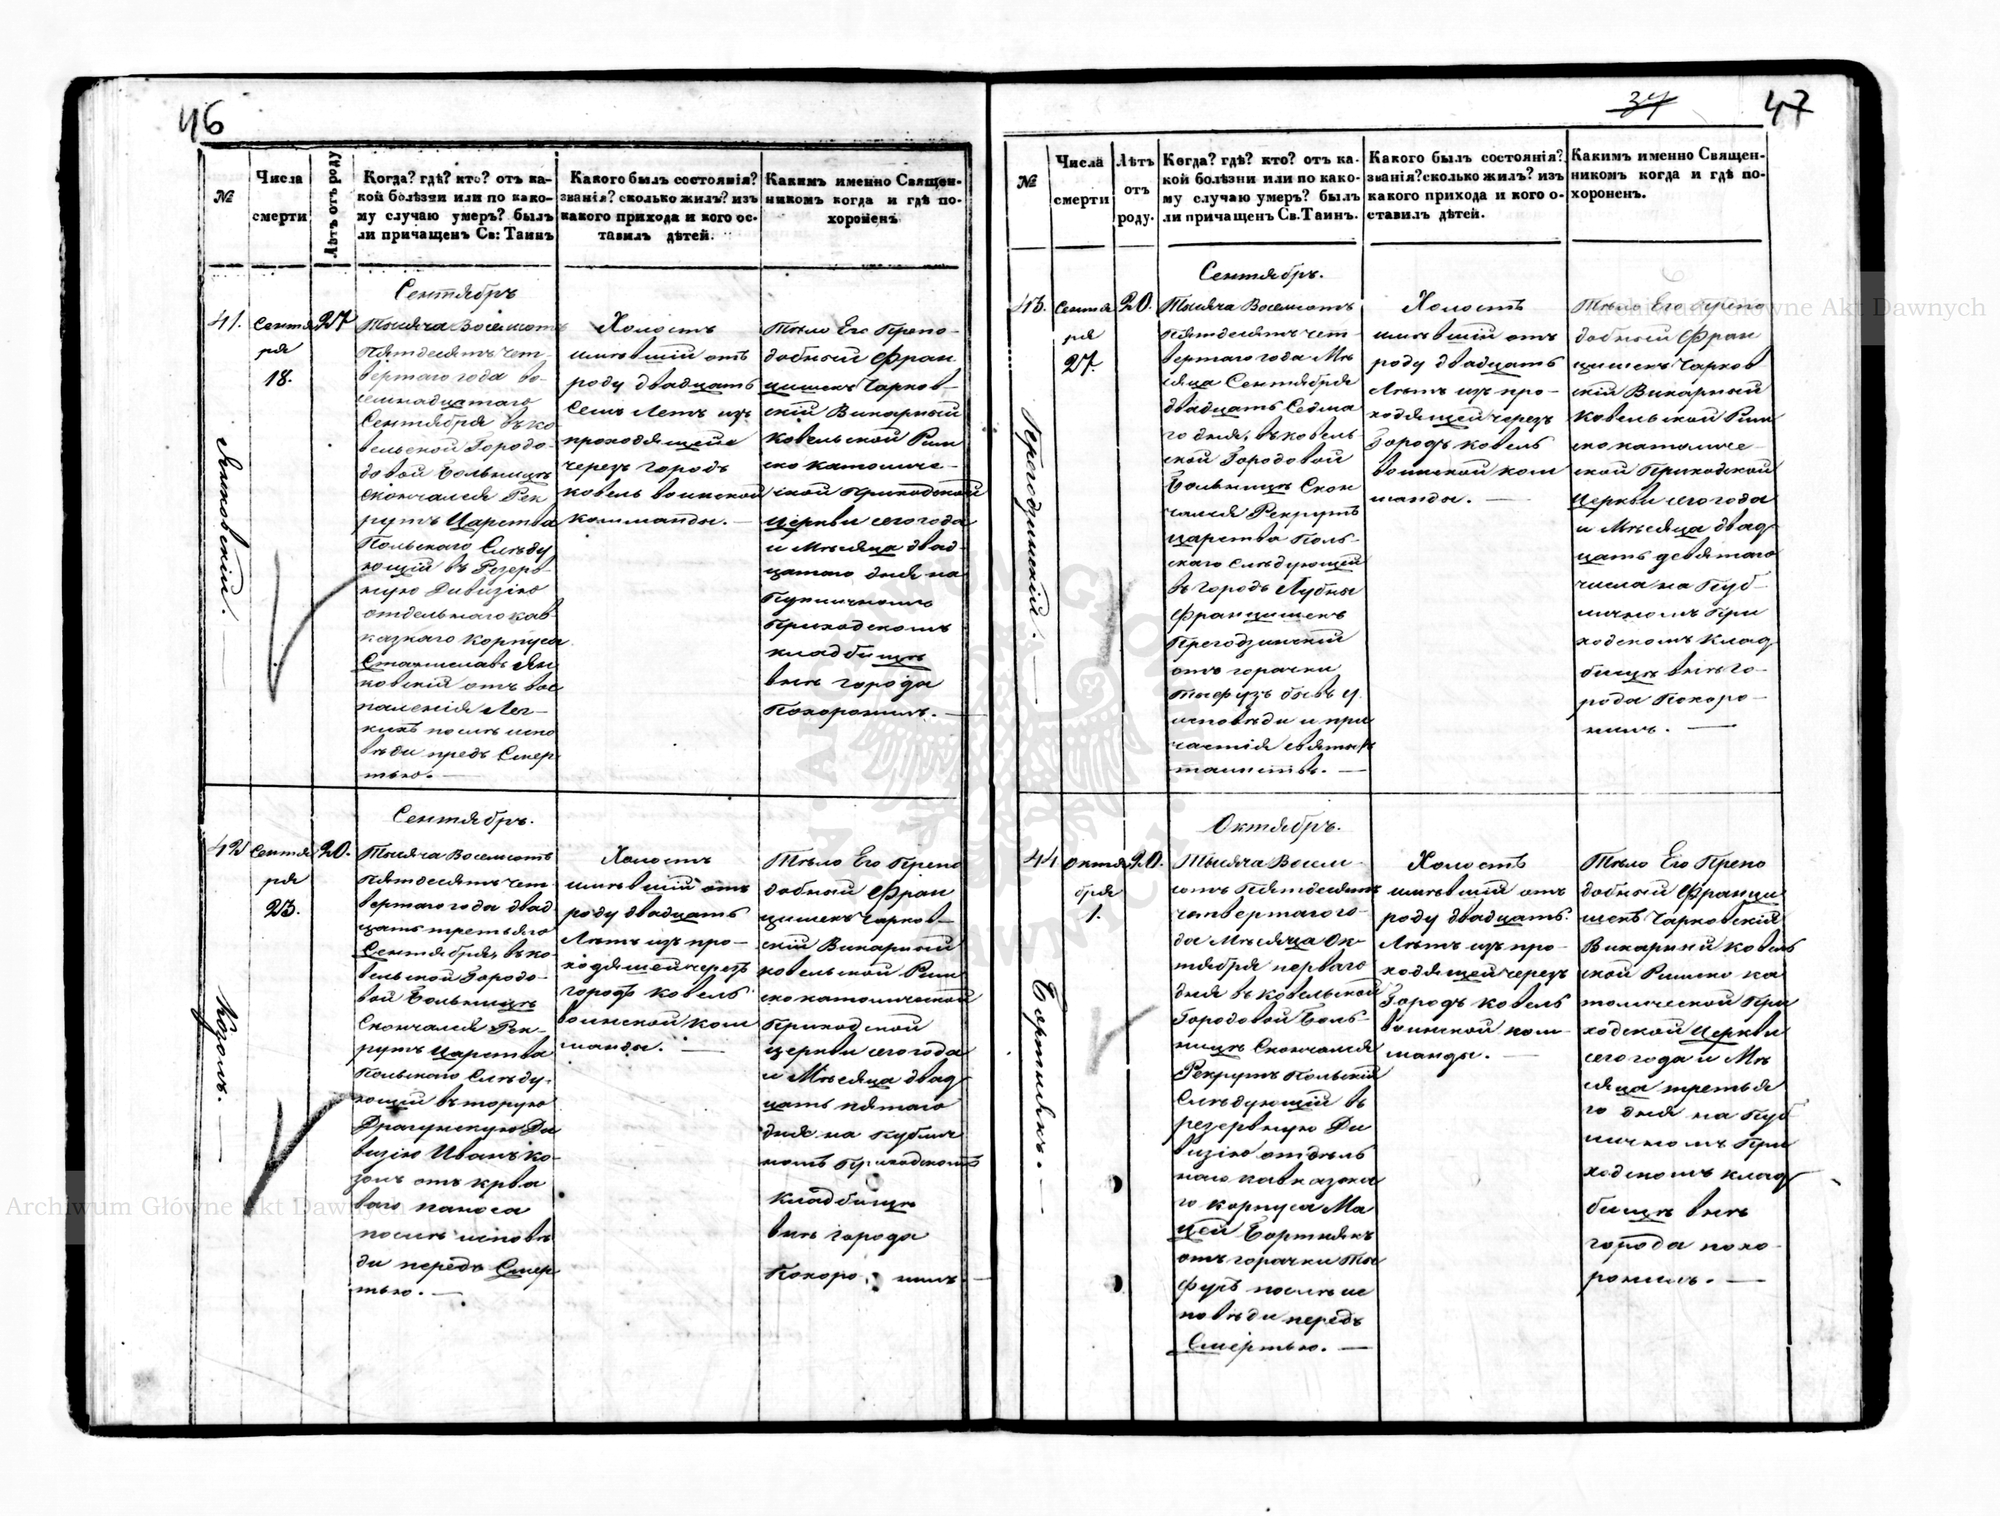 46
№
Числа
смерти
Лѣтъ отъ роду
Когда? гдѣ? кто? отъ ка-
кой болѣзни или по како-
му случаю умеръ? былъ
ли причащенъ Св: Таинъ
Какого былъ состоянія?
званія? сколько жилъ? изъ
какого прихода и кого ос-
тавилъ дѣтей.
Какимъ именно Священ-
никомъ когда и гдѣ по-
хороненъ
41.
Сентя
ря
18.
Янковскій.
27
Сентябрь
Тысяча Восемсотъ
Пятдесятъ чет-
вертаго года во-
семнадцатаго
Сентября въ Ко
вельской Городо-
довой Больницѣ
Скончался Рек
рутъ Царства
Польскаго Слѣду
ющій въ Резер-
ную Дивизію
отдельнаго Кав
казнаго Корпуса
Станиславъ Ян
ковскій отъ вос
паленія Лег-
кихъ послѣ испо
вѣди предъ Смер
тью.
Холостъ
имѣвшій отъ
роду двадцать
Семь Летъ изъ
проходящей
черезъ городъ
Ковель воинской
комманды.
Тѣло Его Препо-
добный Фран
цишекъ Чарков-
скій Викарный
Ковельской Рим
ско католиче-
ской Приходской
Церкви сего года
и Мѣсяца двад-
цатаго дня на
Приходскомъ
кладбищѣ
внѣ города
Похоронилъ.
42
Сентя
ря
23.
Козолъ.
20.
Сентябрь.
Тысяча Восемсотъ
Пятдесятъ чет-
вертаго года двад
цать третьяго
Сентября, въ Ко
вельской Городо-
вой Больницѣ
Скончался Рек-
рутъ Царства
Польскаго Слѣду-
ющій въ торую
Драгунскую Ди
визію Иванъ Ко-
золъ отъ крва
ваго паноса
послѣ исповѣ
ди передъ Смер
тью.
Холостъ
имѣвшій отъ
роду двадцать
Лѣтъ изъ про-
ходящей черезъ
городъ Ковель
воинской ком
манды.
Тѣло Его Препо
добный Фран
цишекъ Чарков-
скій Викарный
Ковельской Рим
ско католической
Приходской
церкви сего года
и Мѣсяца двад
цать пятаго
дня на Публич
номъ Приходскомъ
Кладбищѣ
внѣ города
Похоро нилъ
34
47
№
Числа
смерти
Лѣтъ
отъ
роду.
Когда? гдѣ? кто? отъ ка-
кой болѣзни или по како-
му случаю умеръ? былъ
ли причащенъ Св. Таинъ.
Какого былъ состоянія?
званія? сколько жилъ? изъ
какого прихода и кого о-
ставилъ дѣтей.
Какимъ именно Священ-
никомъ когда и гдѣ по-
хороненъ.
43.
Сентя
ря
27.
20.
Сентябрь.
Тысяча Восемсотъ
Пятдесятъ чет
вертаго года Мѣ
сяца Сентября
двадцать Седма
го дня, въ Ковель-
ской Городовой
Больницѣ Скон
чался Рекрутъ
Царства Поль-
скаго Слѣдующей
въ городъ Лубны
Францишекъ
Прегодзинскій
отъ горячки
исповѣди и при
частія святых
таинствъ.
Холостъ
имѣвшій отъ
роду двадцать
Лѣтъ изъ про-
ходящей черезъ
Городъ Ковель
воинской ком
манды.
Тѣло Его Препо
добный Фран
цишекъ Чарков
скій Викарный
Ковельской Рим
ско католиче-
ской Приходской
Церкви сего года
и Мѣсяца двад
цать девятаго
числа на Пуб-
личномъ При
ходскомъ Клад
бищѣ внѣ го-
рода Похоро-
нилъ.
44
Октя
бря
1.
Бортнякъ.
20.
Октябрь.
Тысяча Восем-
сотъ Пятдесятъ
четвертаго го-
да Мѣсяца Ок-
тября перваго
дня въ Ковельской
Городовой Боль-
ницѣ Скончался
Рекрутъ Польскій
Слѣдующій въ
резервную Ди
визію отдѣль
наго кавказска
го корпуса Ма
цей Бортнякъ
отъ горячки Ты
фусъ послѣ ис
повѣди передъ
Смертью.
Холостъ
имѣвшій отъ
роду двадцать
Лѣтъ изъ про-
ходящей черезъ
Городъ Ковель
воинской ком-
манды.
Тѣло Его Препо
добный Франци
шекъ Чарковскій
Викарный Ковель
ской Римско ка
толической При
ходской Церкви
сего года и Мѣ
сяца третья
го дня на Пуб
личномъ При
ходскомъ клад
бищѣ внѣ
города похо-
ронилъ.
Archiwum Główne Akt Dawnych
Archiwum Główne Akt Dawnych